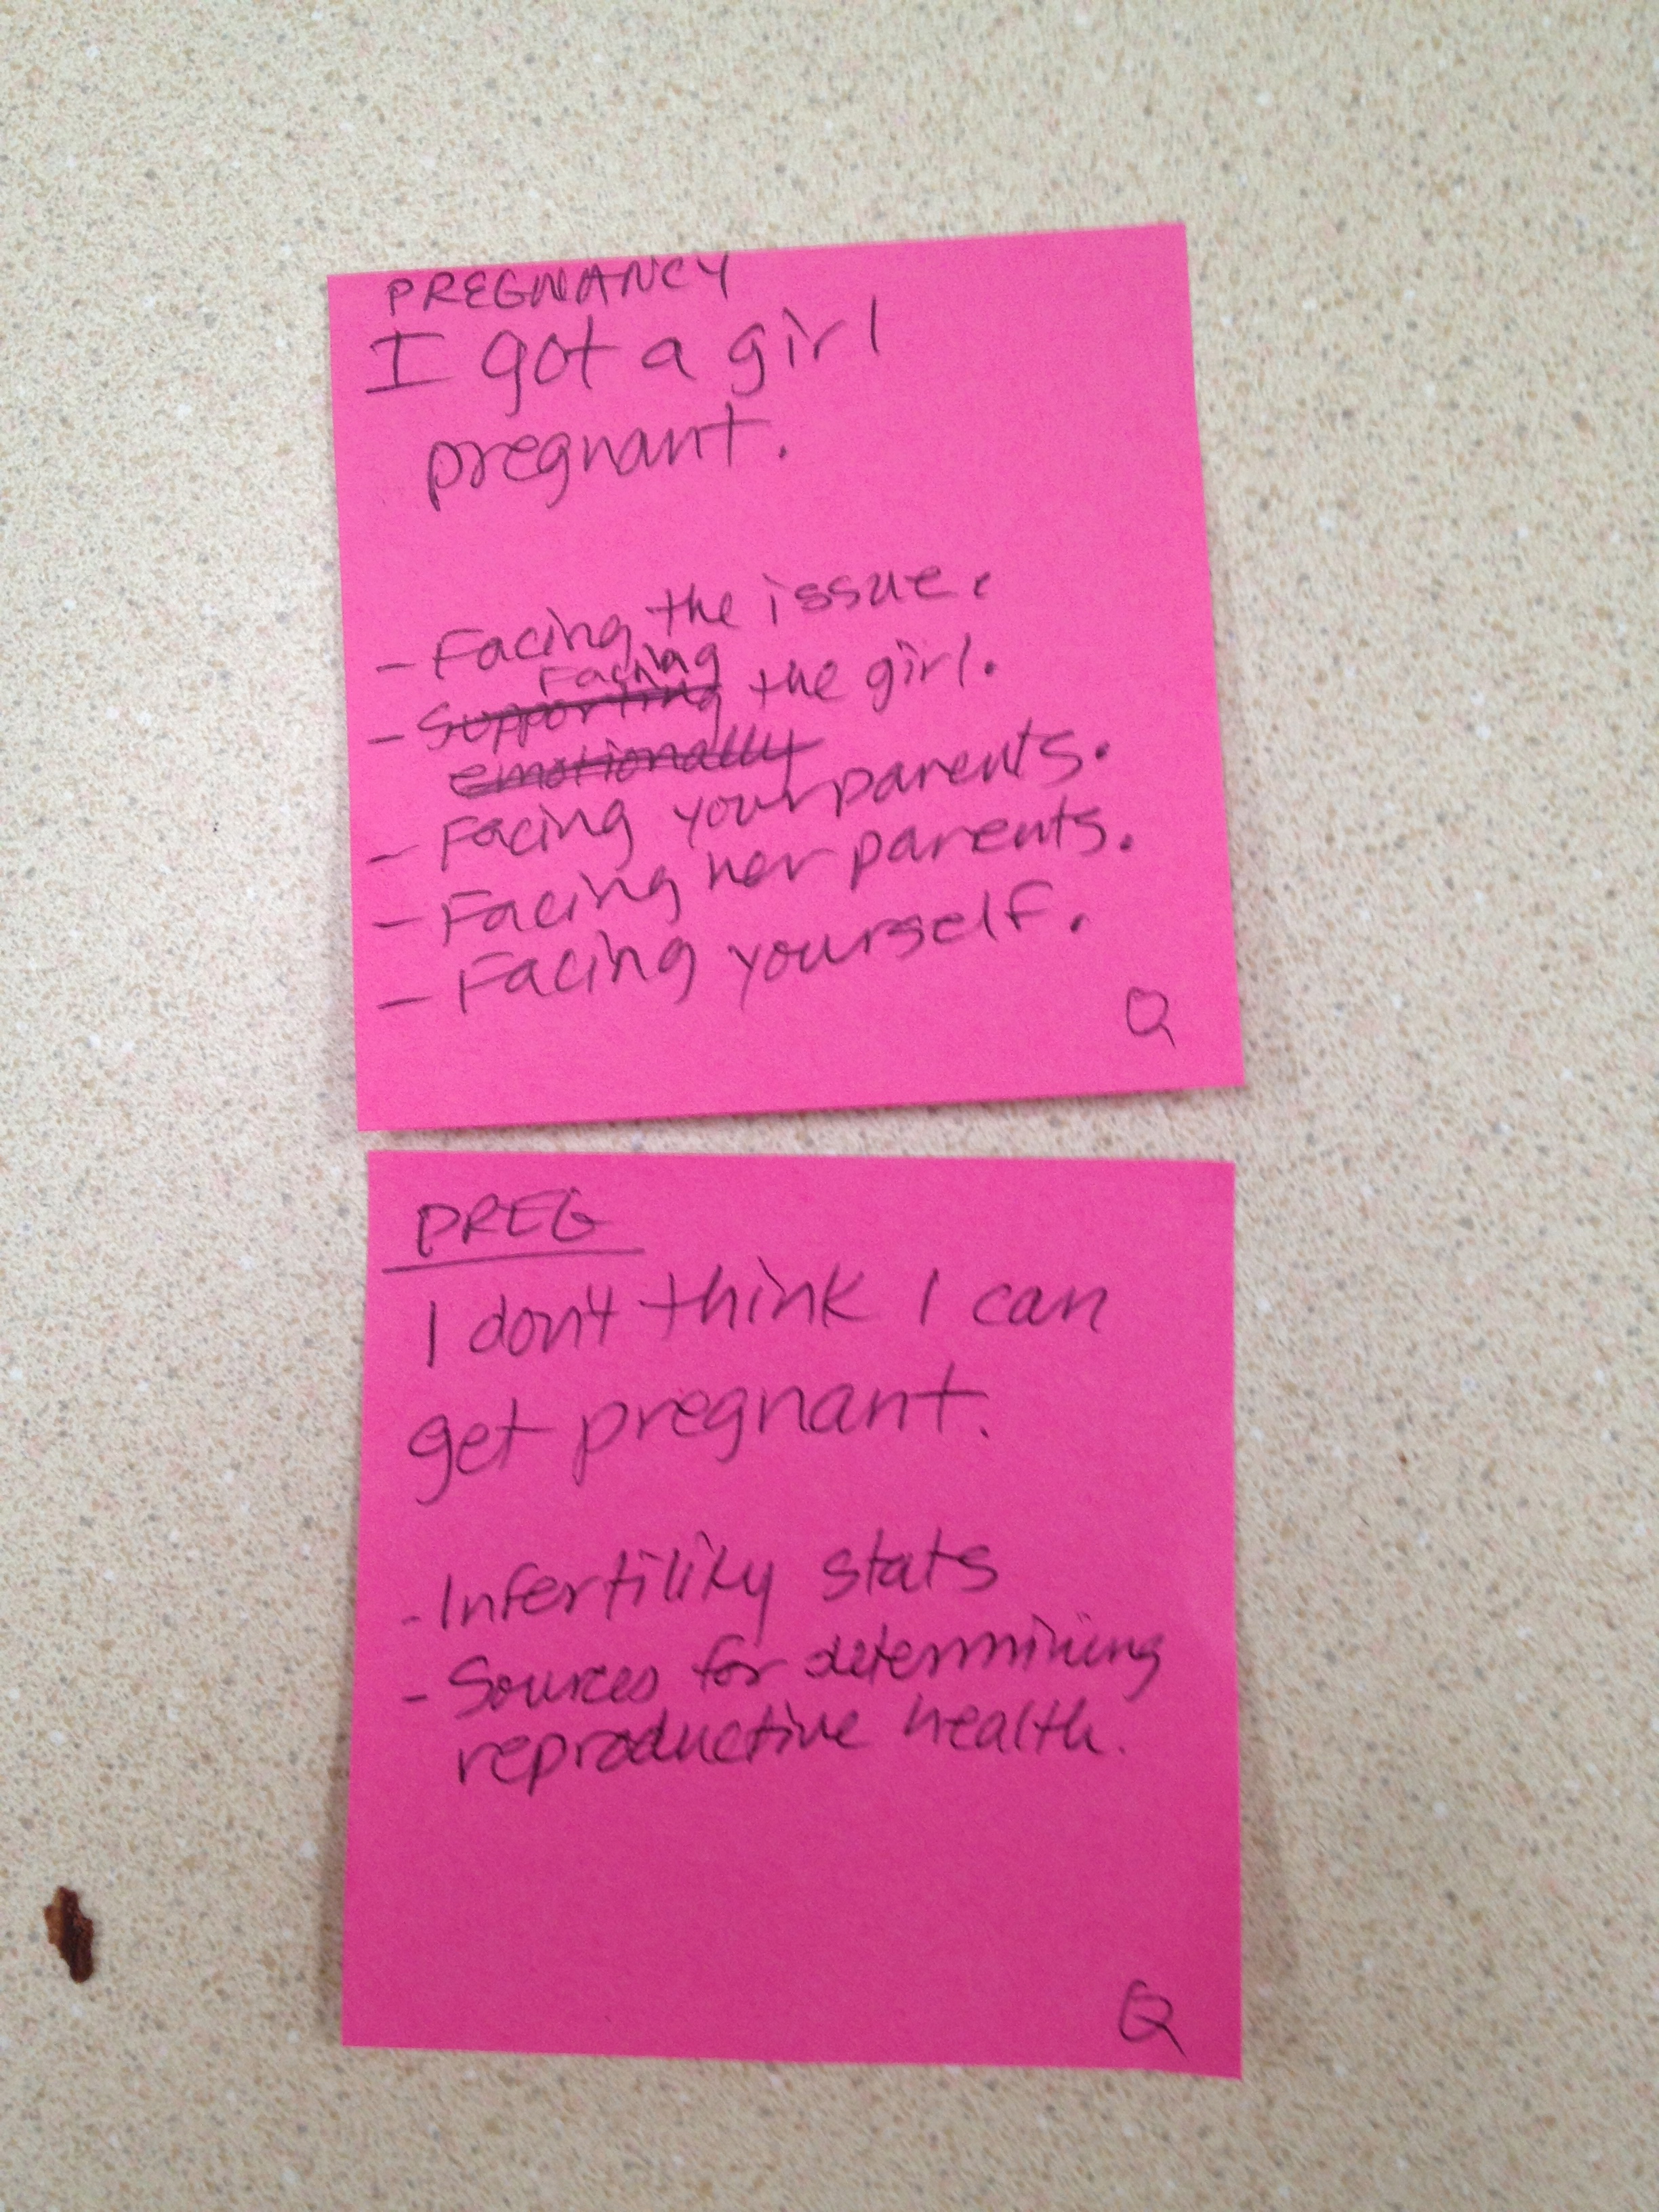 PREGNANCY
I got a girl
pregnant.
- Facing the issue.
Facing
- Supporting the girl.
emotionally
- Facing your parents.
- Facing her parents.
- Facing yourself.
Q
PREG
I don't think I can
get pregnant.
- Infertility stats
- Sources for determining
reproductive health.
Q